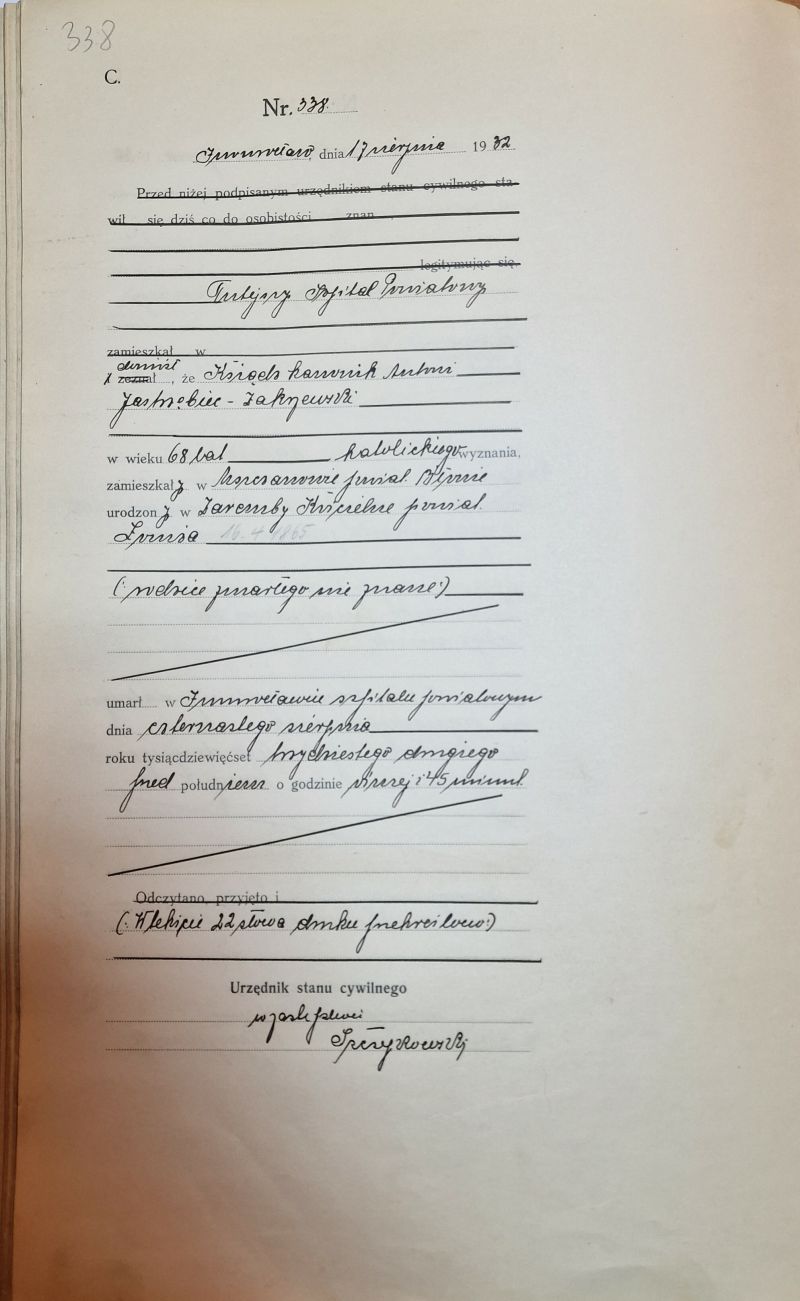 338
C.
Nr. 338.
Inowrocław, dnia 17 sierpnia 1932
Przed niżej podpisanym urzędnikiem stanu cywilnego sta-
wił się dziś co do osobistości znan
legitymując się
Tutejszy Szpital Powiatowy
zamieszkał w
doniósł
i zeznał, że Ksiądz kanonik Antoni
Jastrzębiec-Zakrzewski
w wieku 68 lat katolickiego wyznania,
zamieszkały w powiat
urodzony w Zaremby Kościelne powiat
Łomża 16.4.1865
(: rodzice zmarłego nie znane :)
umarł w Inowrocławiu szpitalu powiatowym
dnia czternastego sierpnia
roku tysiącdziewięćset trzydziestego drugiego
przed południem o godzinie i 45 minut
Odczytano, przyjęto i
(: W tekście 22 słowa druku przekreślono :)
Urzędnik stanu cywilnego
w zastępstwie